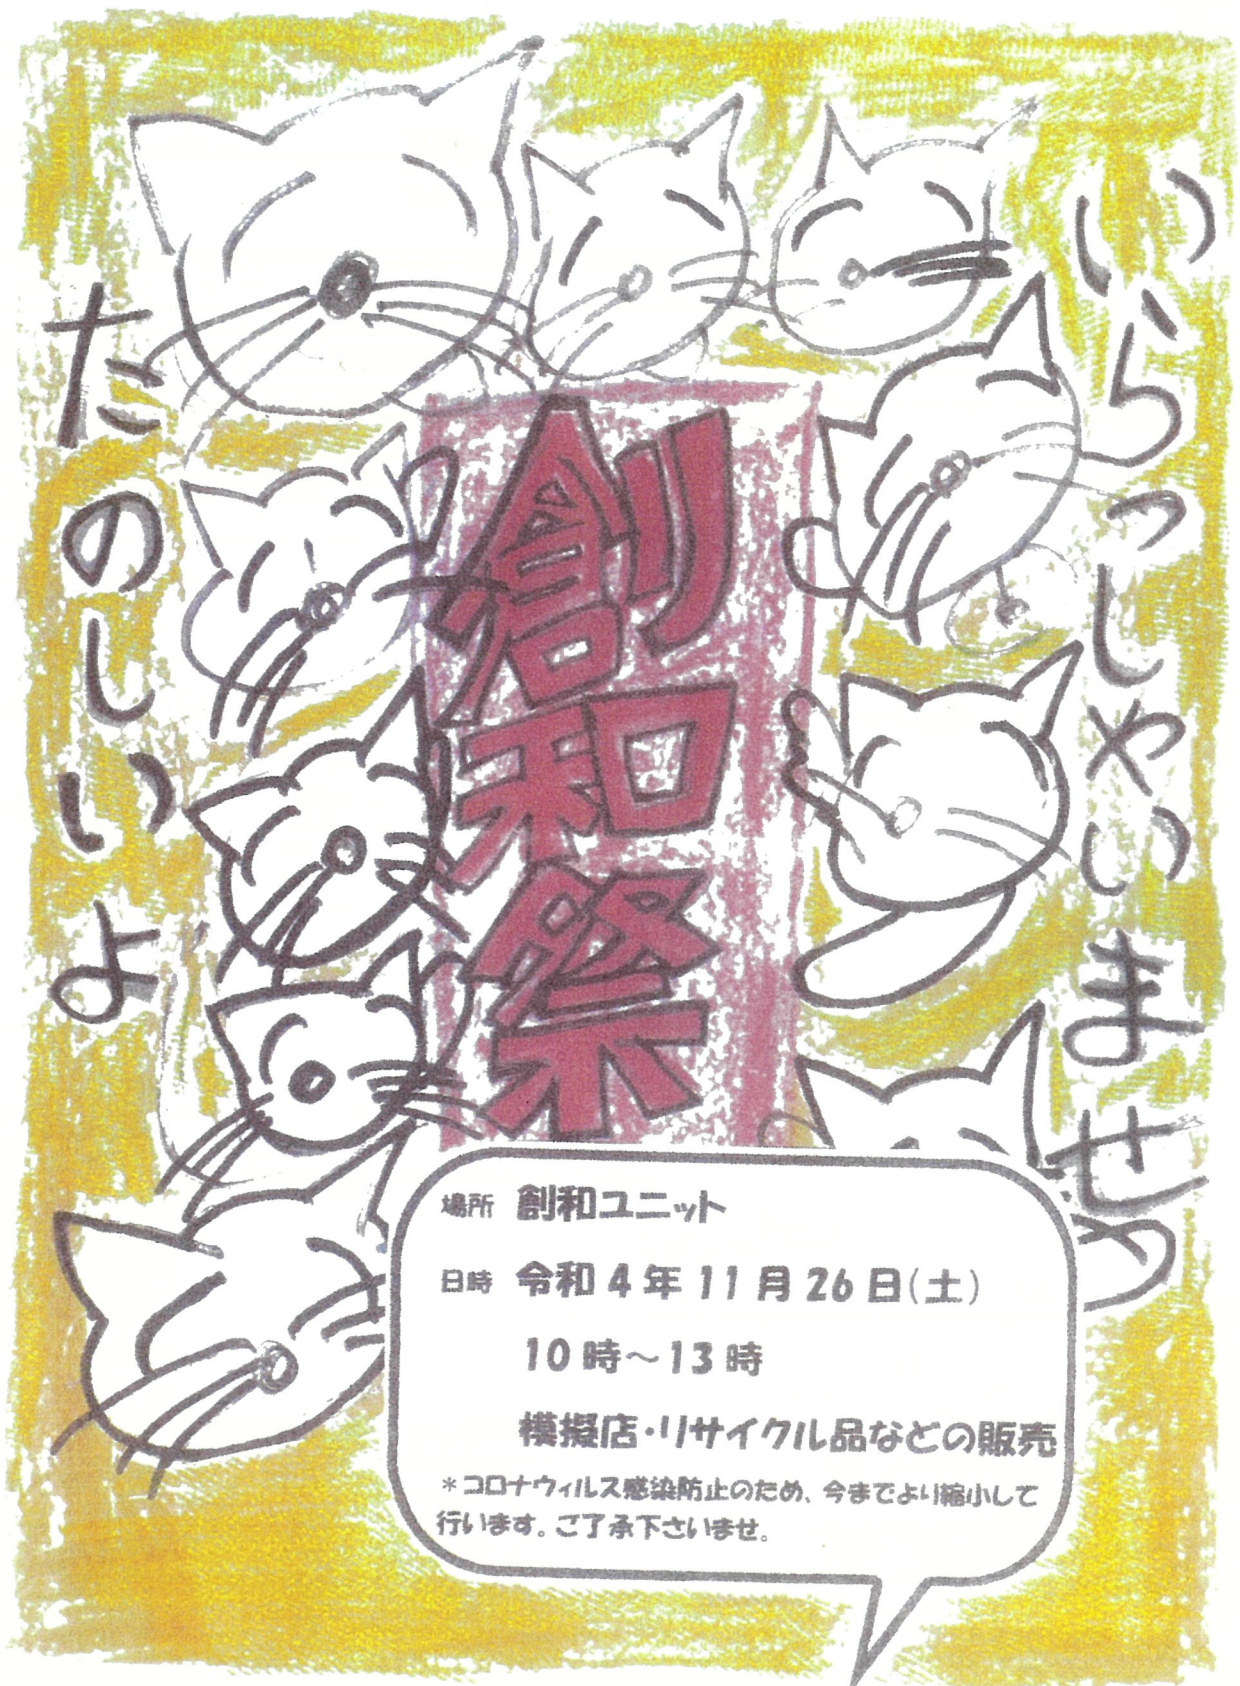 いらっしゃいませ
創和祭
たのしいよ
場所 創和ユニット
日時 令和4年11月26日(土)
10時～13時
模擬店・リサイクル品などの販売
＊コロナウィルス感染防止のため、今までより縮小して
行います。ご了承下さいませ。